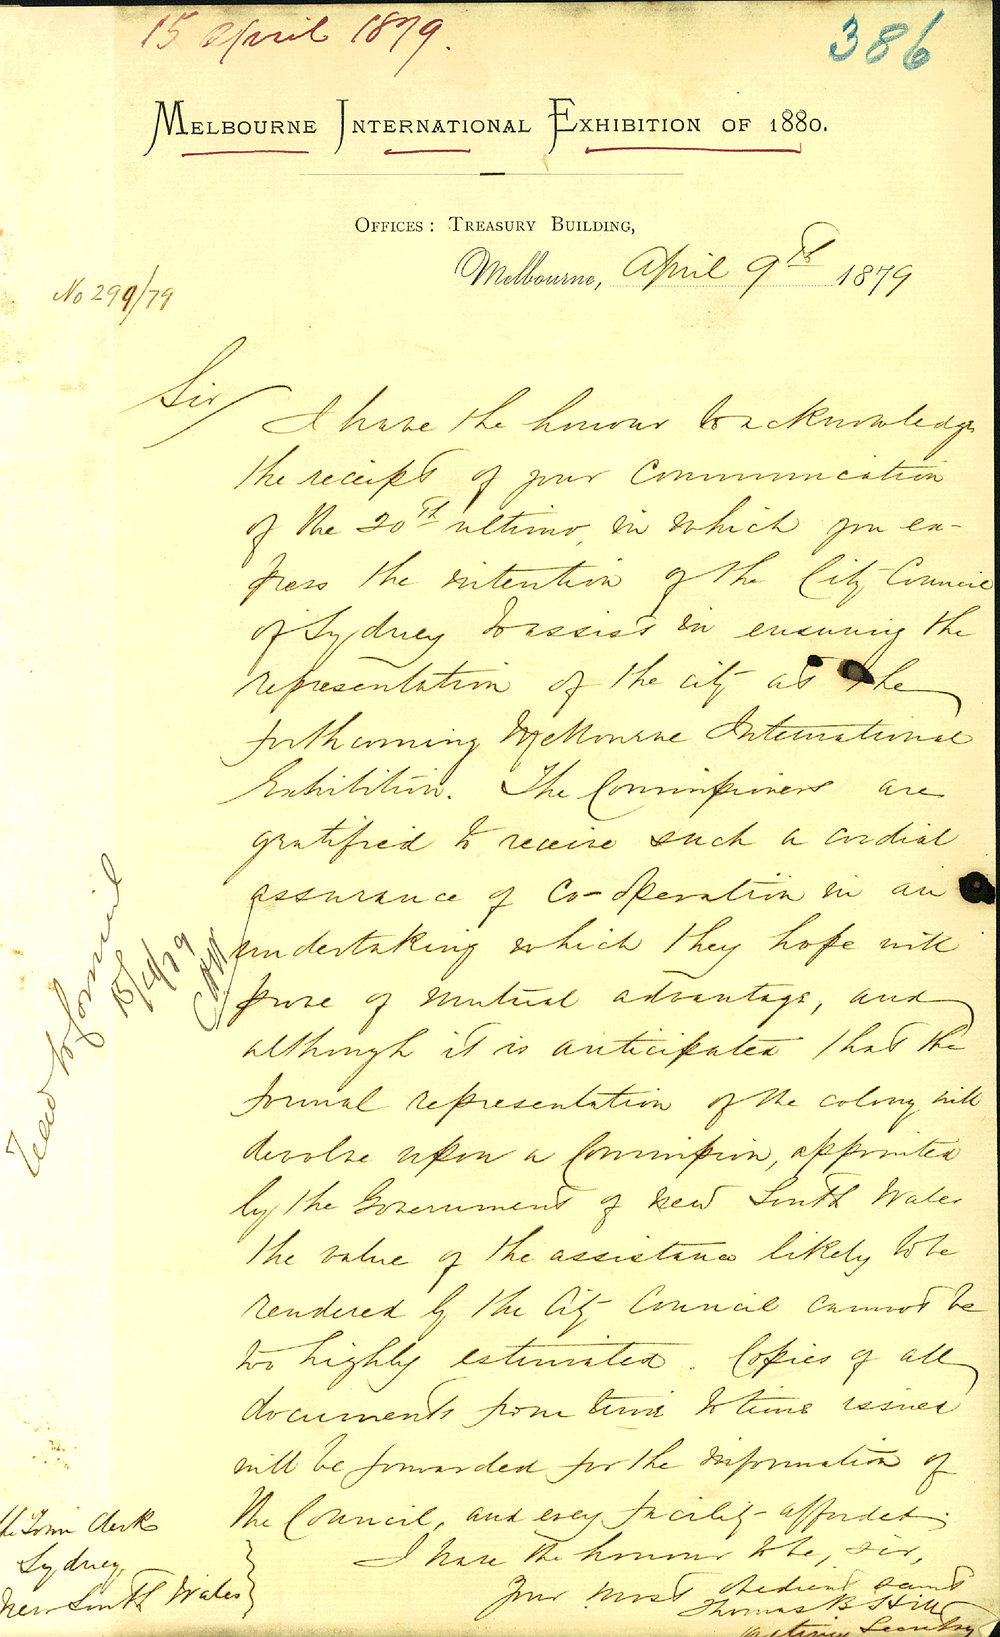 15 April 1879.
386
Melbourne International Exhibition of 1880.
Offices: Treasury Building,
Melbourne, April 9th 1879
No 299/79
Sir
I have the honour to acknowledge
the receipt of your communication
of the 20th ultimo, in which you ex-
press the intention of the City Council
of Sydney to assist in ensuring the
representation of the city at the
forthcoming Melbourne International
Exhibition. The Commissioners are
gratified to receive such a cordial
assurance of co-operation in an
undertaking which they hope will
prove of mutual advantage, and
although it is anticipated that the
formal representation of the colony will
devolve upon a Commission, appointed
by the Government of New South Wales
the value of the assistance likely to be
rendered by the City Council cannot be
too highly estimated. Copies of all
documents from time to time issued
will be forwarded for the information of
the Council, and every facility afforded.
I have the honour to be, sir,
Your most obedient servt
Thomas B Hill
Secretary
Read to Council
15/4/79
The Town Clerk
Sydney,
New South Wales